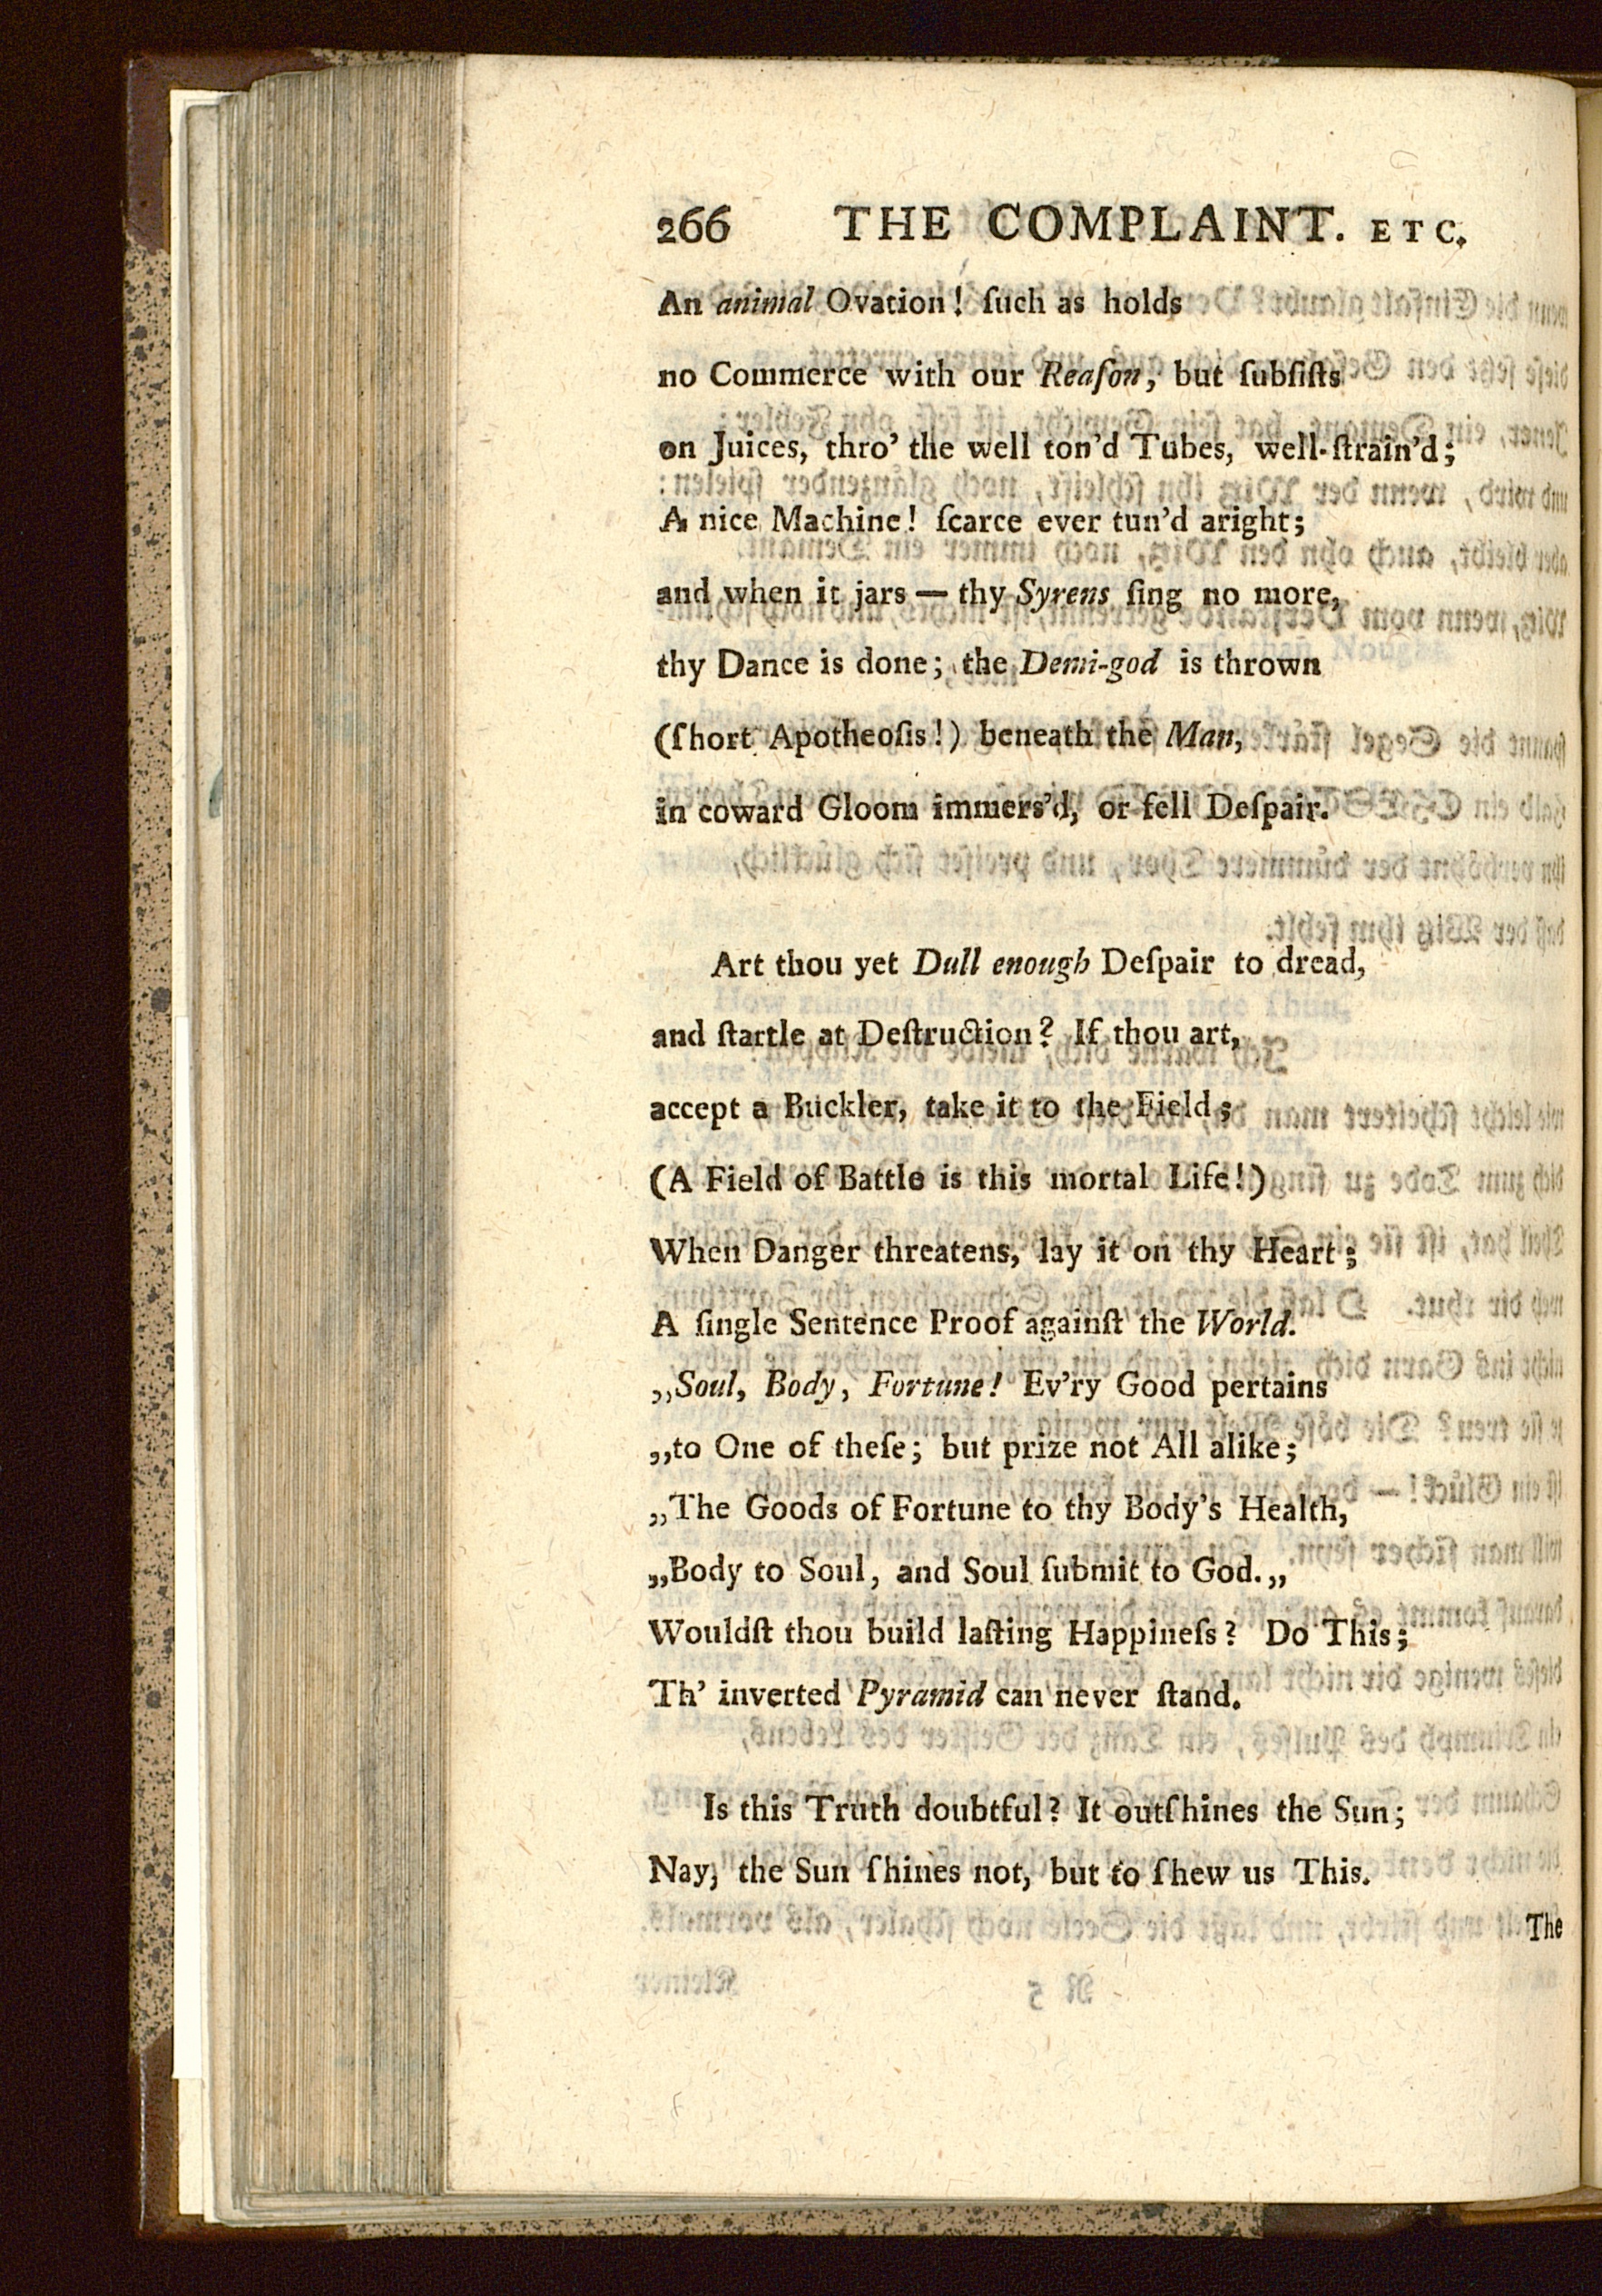 266 THE COMPLAINT. ETC.
An animal Ovation! ſuch as holds
no Commerce with our Reaſon, but ſubſiſts
on Juices, thro' the well ton'd Tubes, well-ſtrain'd;
A nice Machine! ſcarce ever tun'd aright;
and when it jars — thy Syrens ſing no more,
thy Dance is done; the Demi-god is thrown
(ſhort Apotheoſis!) beneath the Man,
in coward Gloom immers'd, or fell Deſpair.
Art thou yet Dull enough Deſpair to dread,
and ſtartle at Deſtruction? If thou art,
accept a Buckler, take it to the Field;
(A Field of Battle is this mortal Life!)
When Danger threatens, lay it on thy Heart;
A ſingle Sentence Proof againſt the World.
„Soul, Body, Fortune! Ev'ry Good pertains
„to One of theſe; but prize not All alike;
„The Goods of Fortune to thy Body's Health,
„Body to Soul, and Soul ſubmit to God.„
Wouldſt thou build laſting Happineſs? Do This;
Th' inverted Pyramid can never ſtand.
Is this Truth doubtful? It outſhines the Sun;
Nay, the Sun ſhines not, but to ſhew us This.
The